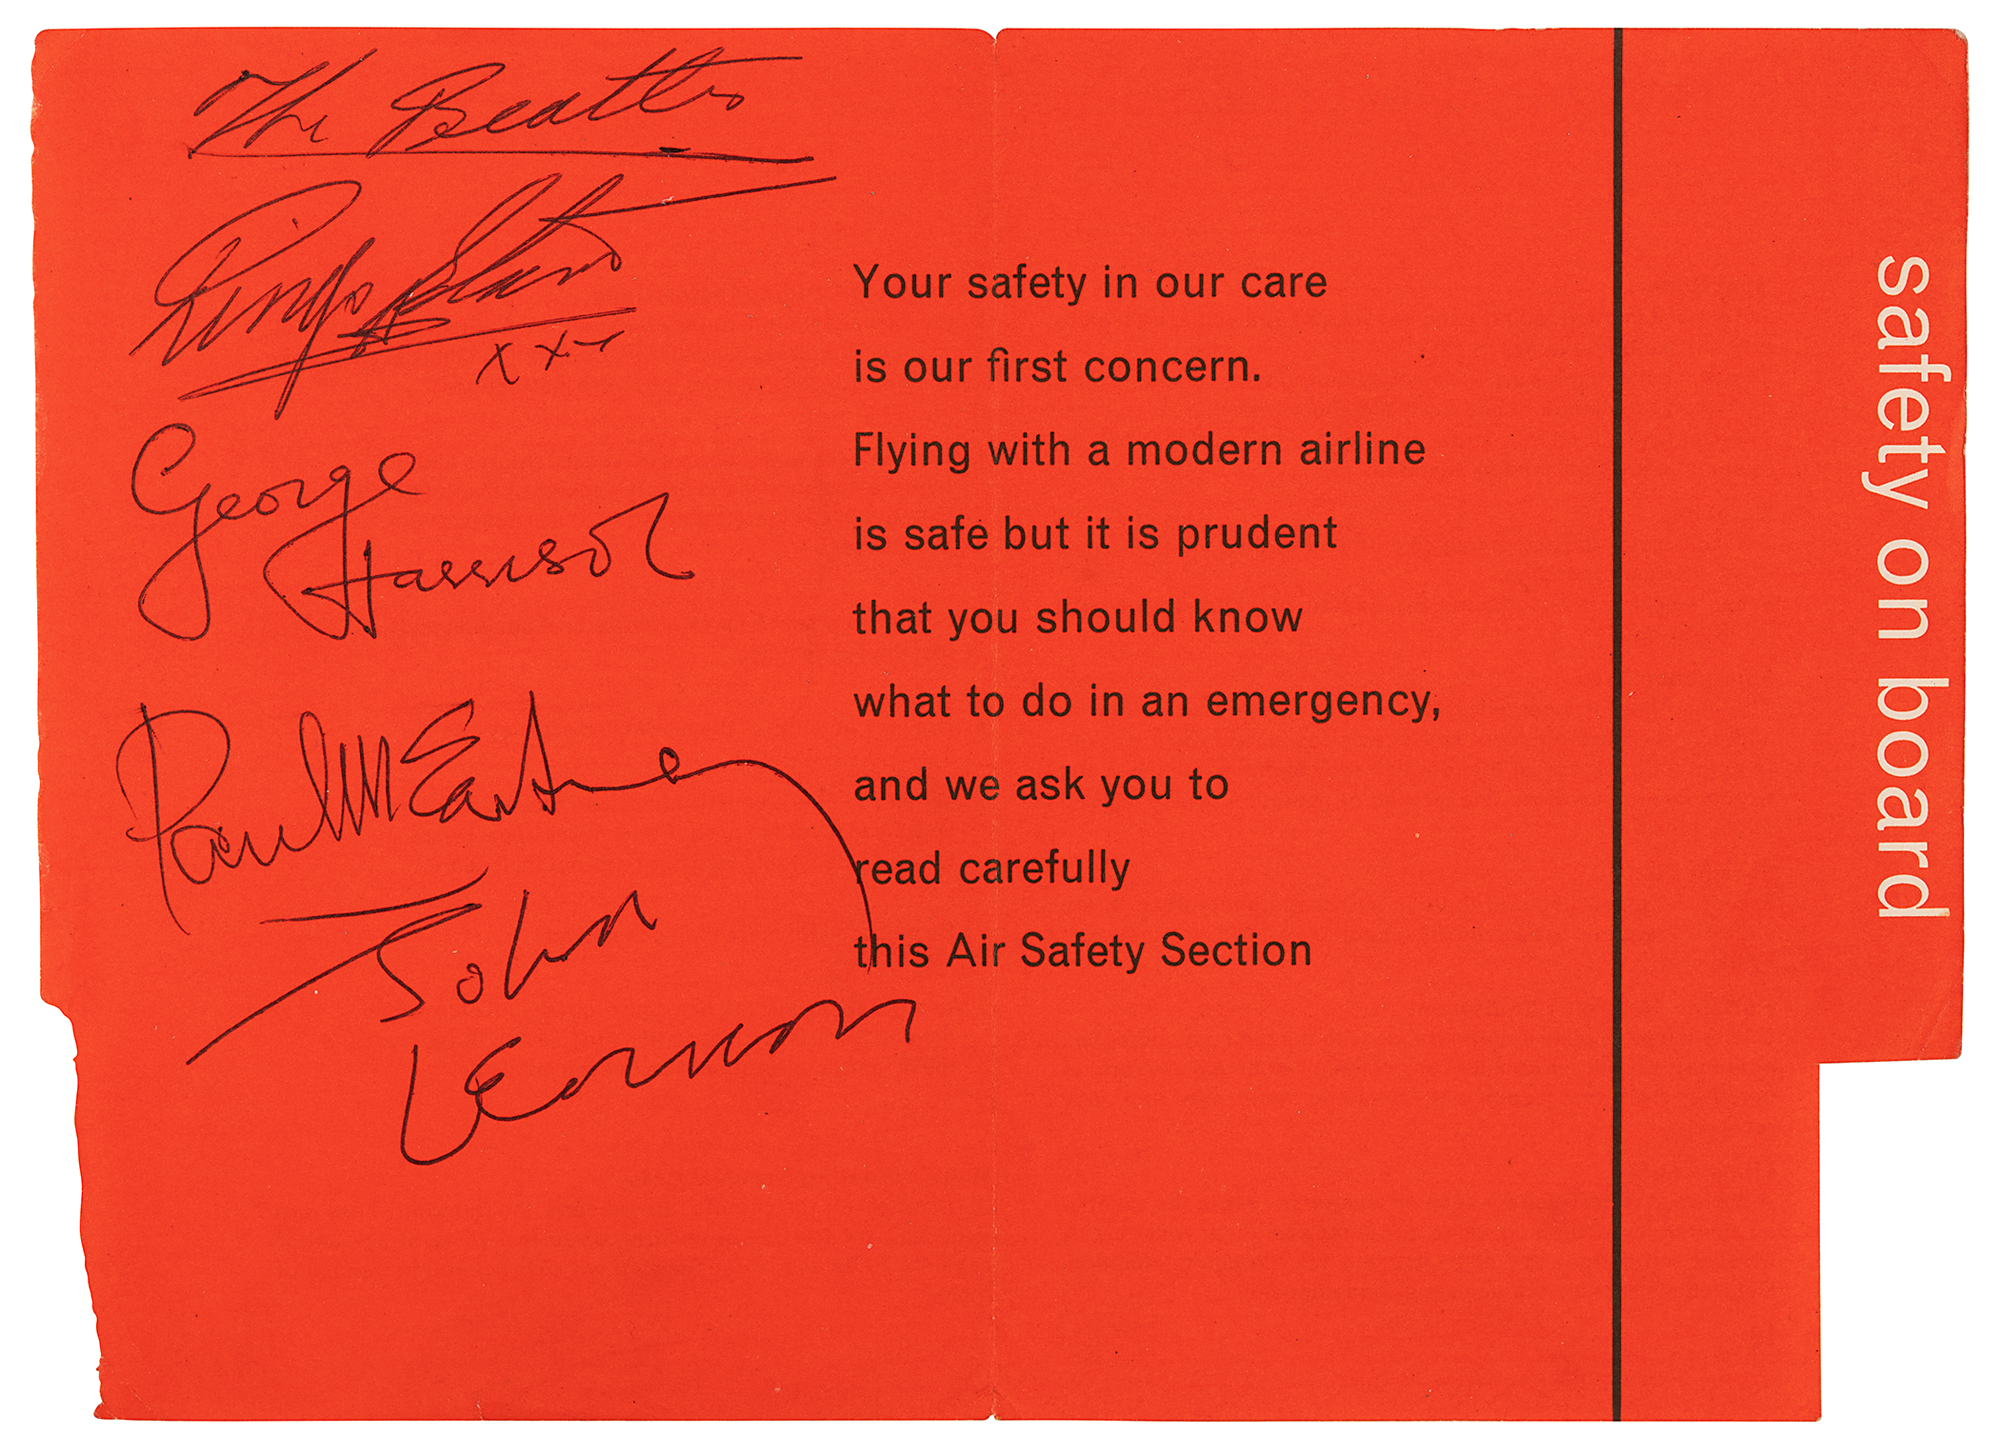 The Beatles
Ringo Starr
xxx
George
Harrison
Paul McCartney
John
Lennon
Your safety in our care
is our first concern.
Flying with a modern airline
is safe but it is prudent
that you should know
what to do in an emergency,
and we ask you to
read carefully
this Air Safety Section
safety on board